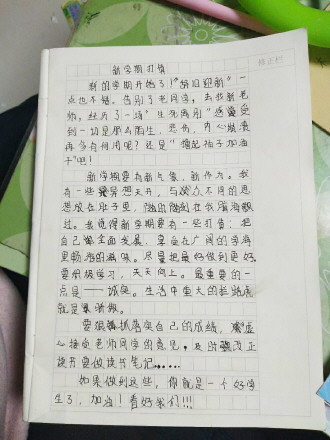 新学期打算
新的学期开始了!"辞旧迎新"一
点也不错。告别了老同学,去找新老
师。经历了一场"生死离别"感受
到一切是那么陌生,悲伤,内心
再多有何用呢?还是"撸起袖子加油
干"吧!
新学期要有新气象,新作为。我
有一些异想天开,与众不同的思
想放在肚子里,隐隐在我脑海飘
过。我觉得新学期要有一些打算:把
自己全面发展,享受在广阔的学海
里畅游的滋味。尽量把最好做到更好。
要积极学习,天天向上。最重要的一
点是——诚实。生活中重大的
就是
要狠狠抓落实自己的成绩,虚
心接受老师同学的意见,及时改正
读书要做读书笔记……
如果做到这些,你就是一个好学
生了,加油!看好我们!!!
修正栏